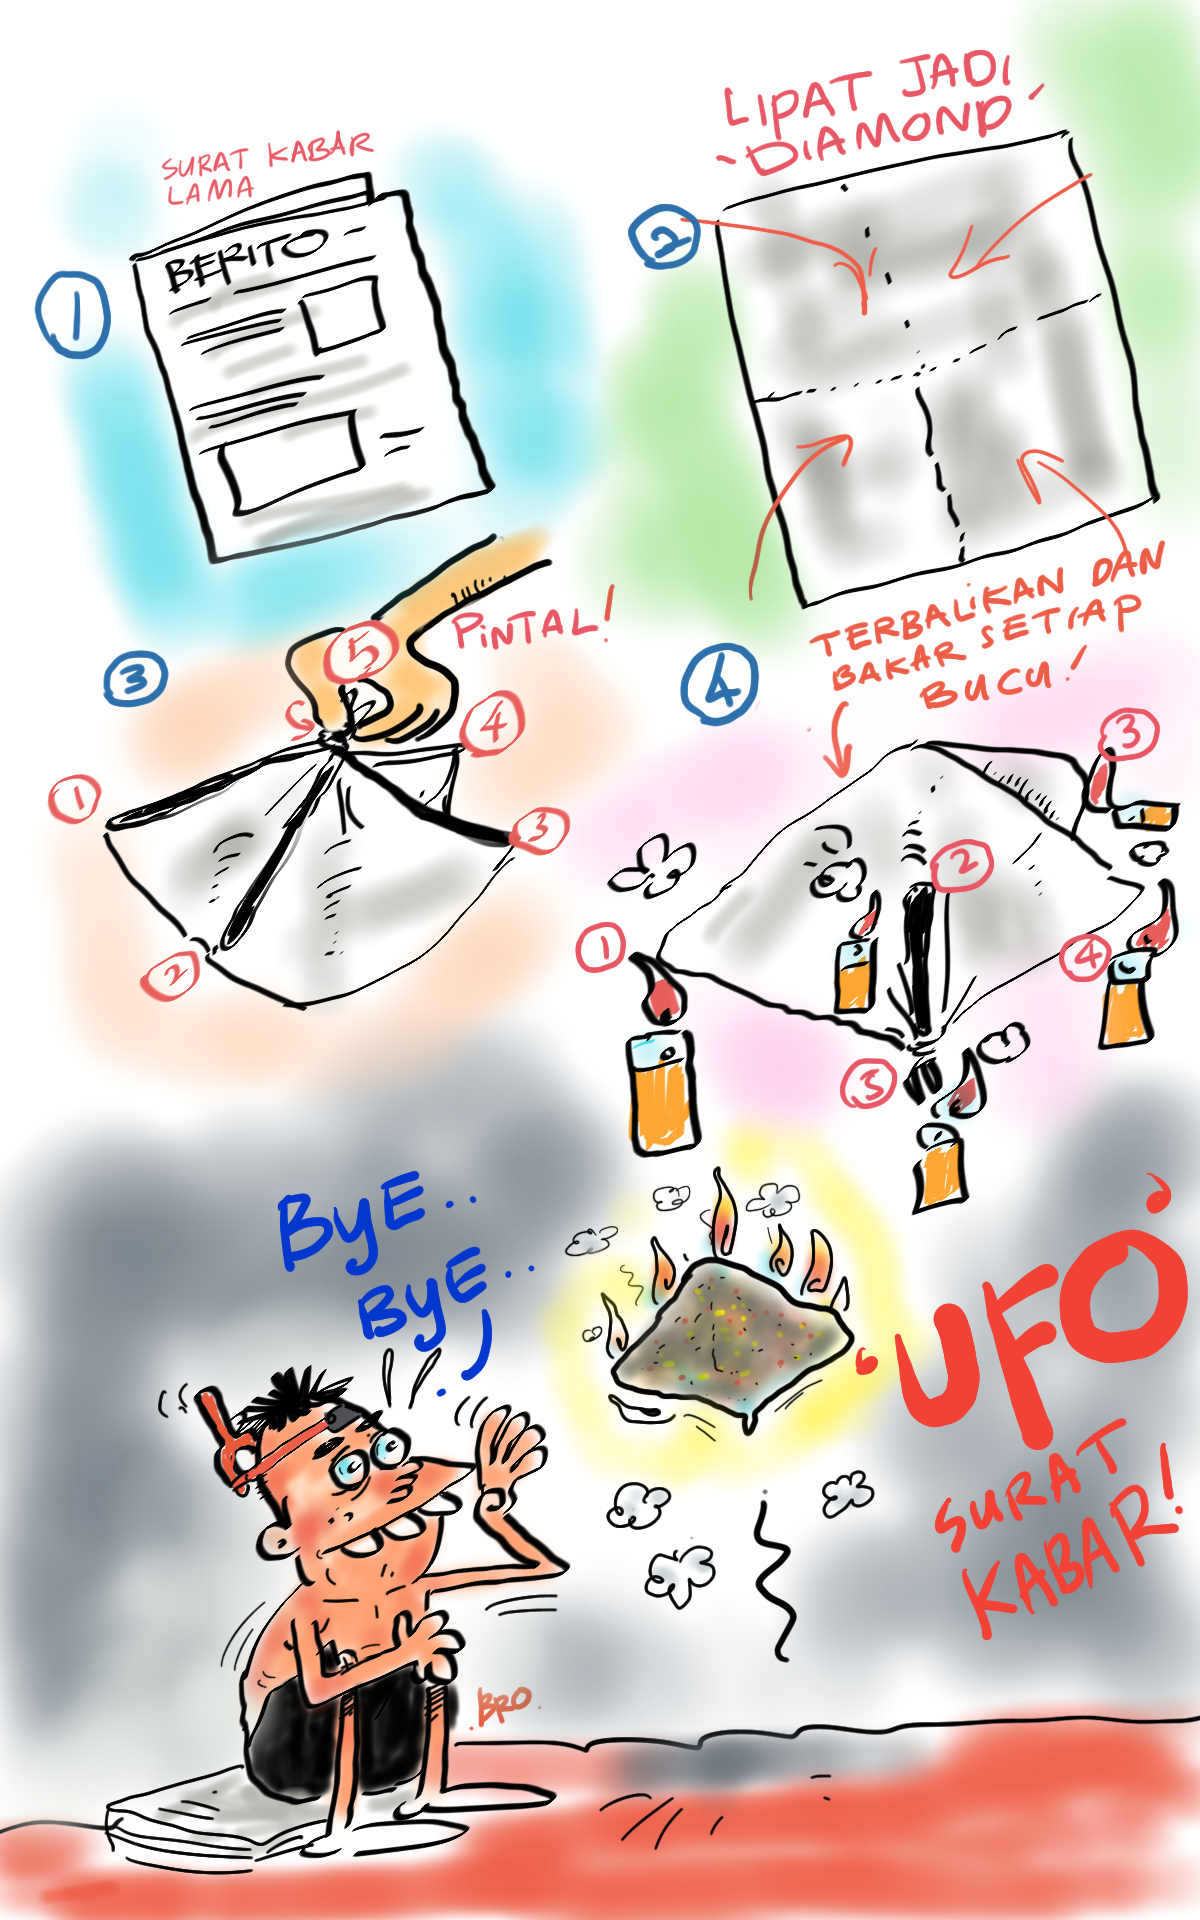 SURAT KABAR
LAMA
1
BERITO
LIPAT JADI
"DIAMOND"
2
3
5
PINTAL!
4
1
3
2
TERBALIKAN DAN
BAKAR SETIAP
BUCU!
4
3
2
1
4
5
BYE..
BYE..
'UFO'
SURAT
KABAR!
BRO.